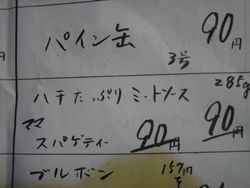 パイン缶 90円
3号
285g
ハチたっぷりミートソース 90円
ママ
スパゲティー 90円
ブルボン 157円